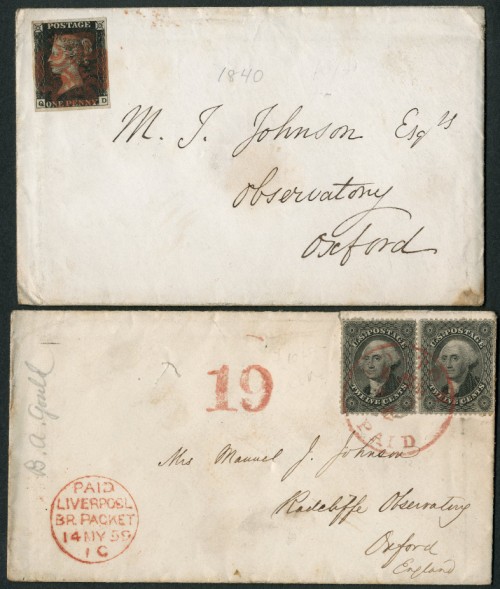 POSTAGE
G D
ONE PENNY
1840
M. J. Johnson Esqrs
Observatory
Oxford
B. A. Gould
19
U.S. POSTAGE
TWELVE CENTS
U.S. POSTAGE
TWELVE CENTS
PAID
Mrs Manuel J. Johnson
Radcliffe Observatory
Oxford
England
PAID
LIVERPOOL
BR. PACKET
14 MY 59
1 C